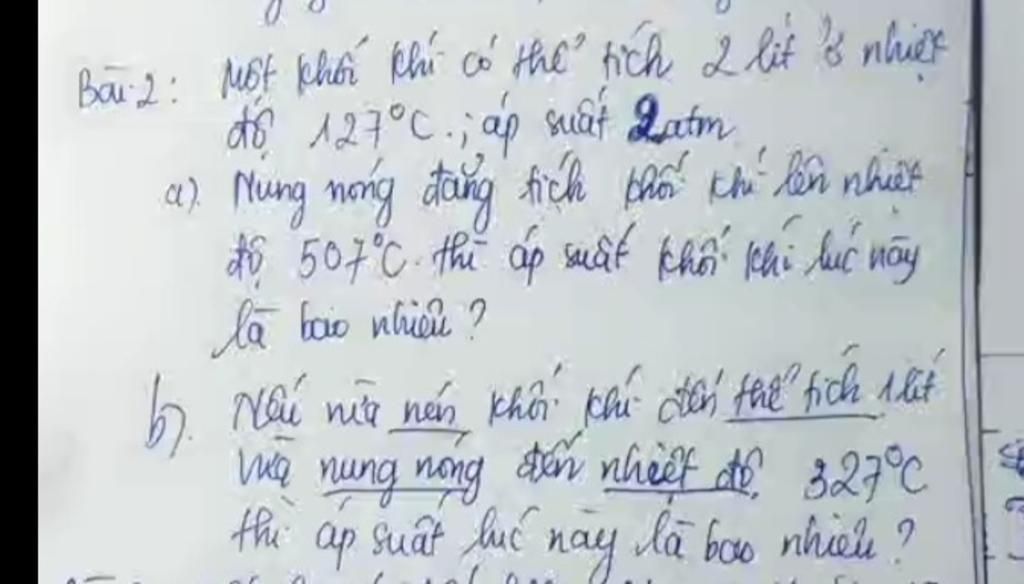 Bài 2: Một khối khí có thể tích 2 lít ở nhiệt
độ 127°C.; áp suất 2atm
a). Nung nóng đẳng tích khối khí lên nhiệt
độ 507°C. thì áp suất khối khí lúc này
là bao nhiêu?
b). Nếu vừa nén khối khí đến thể tích 1 lít
vừa nung nóng đến nhiệt độ 327°C
thì áp suất lúc này là bao nhiêu?